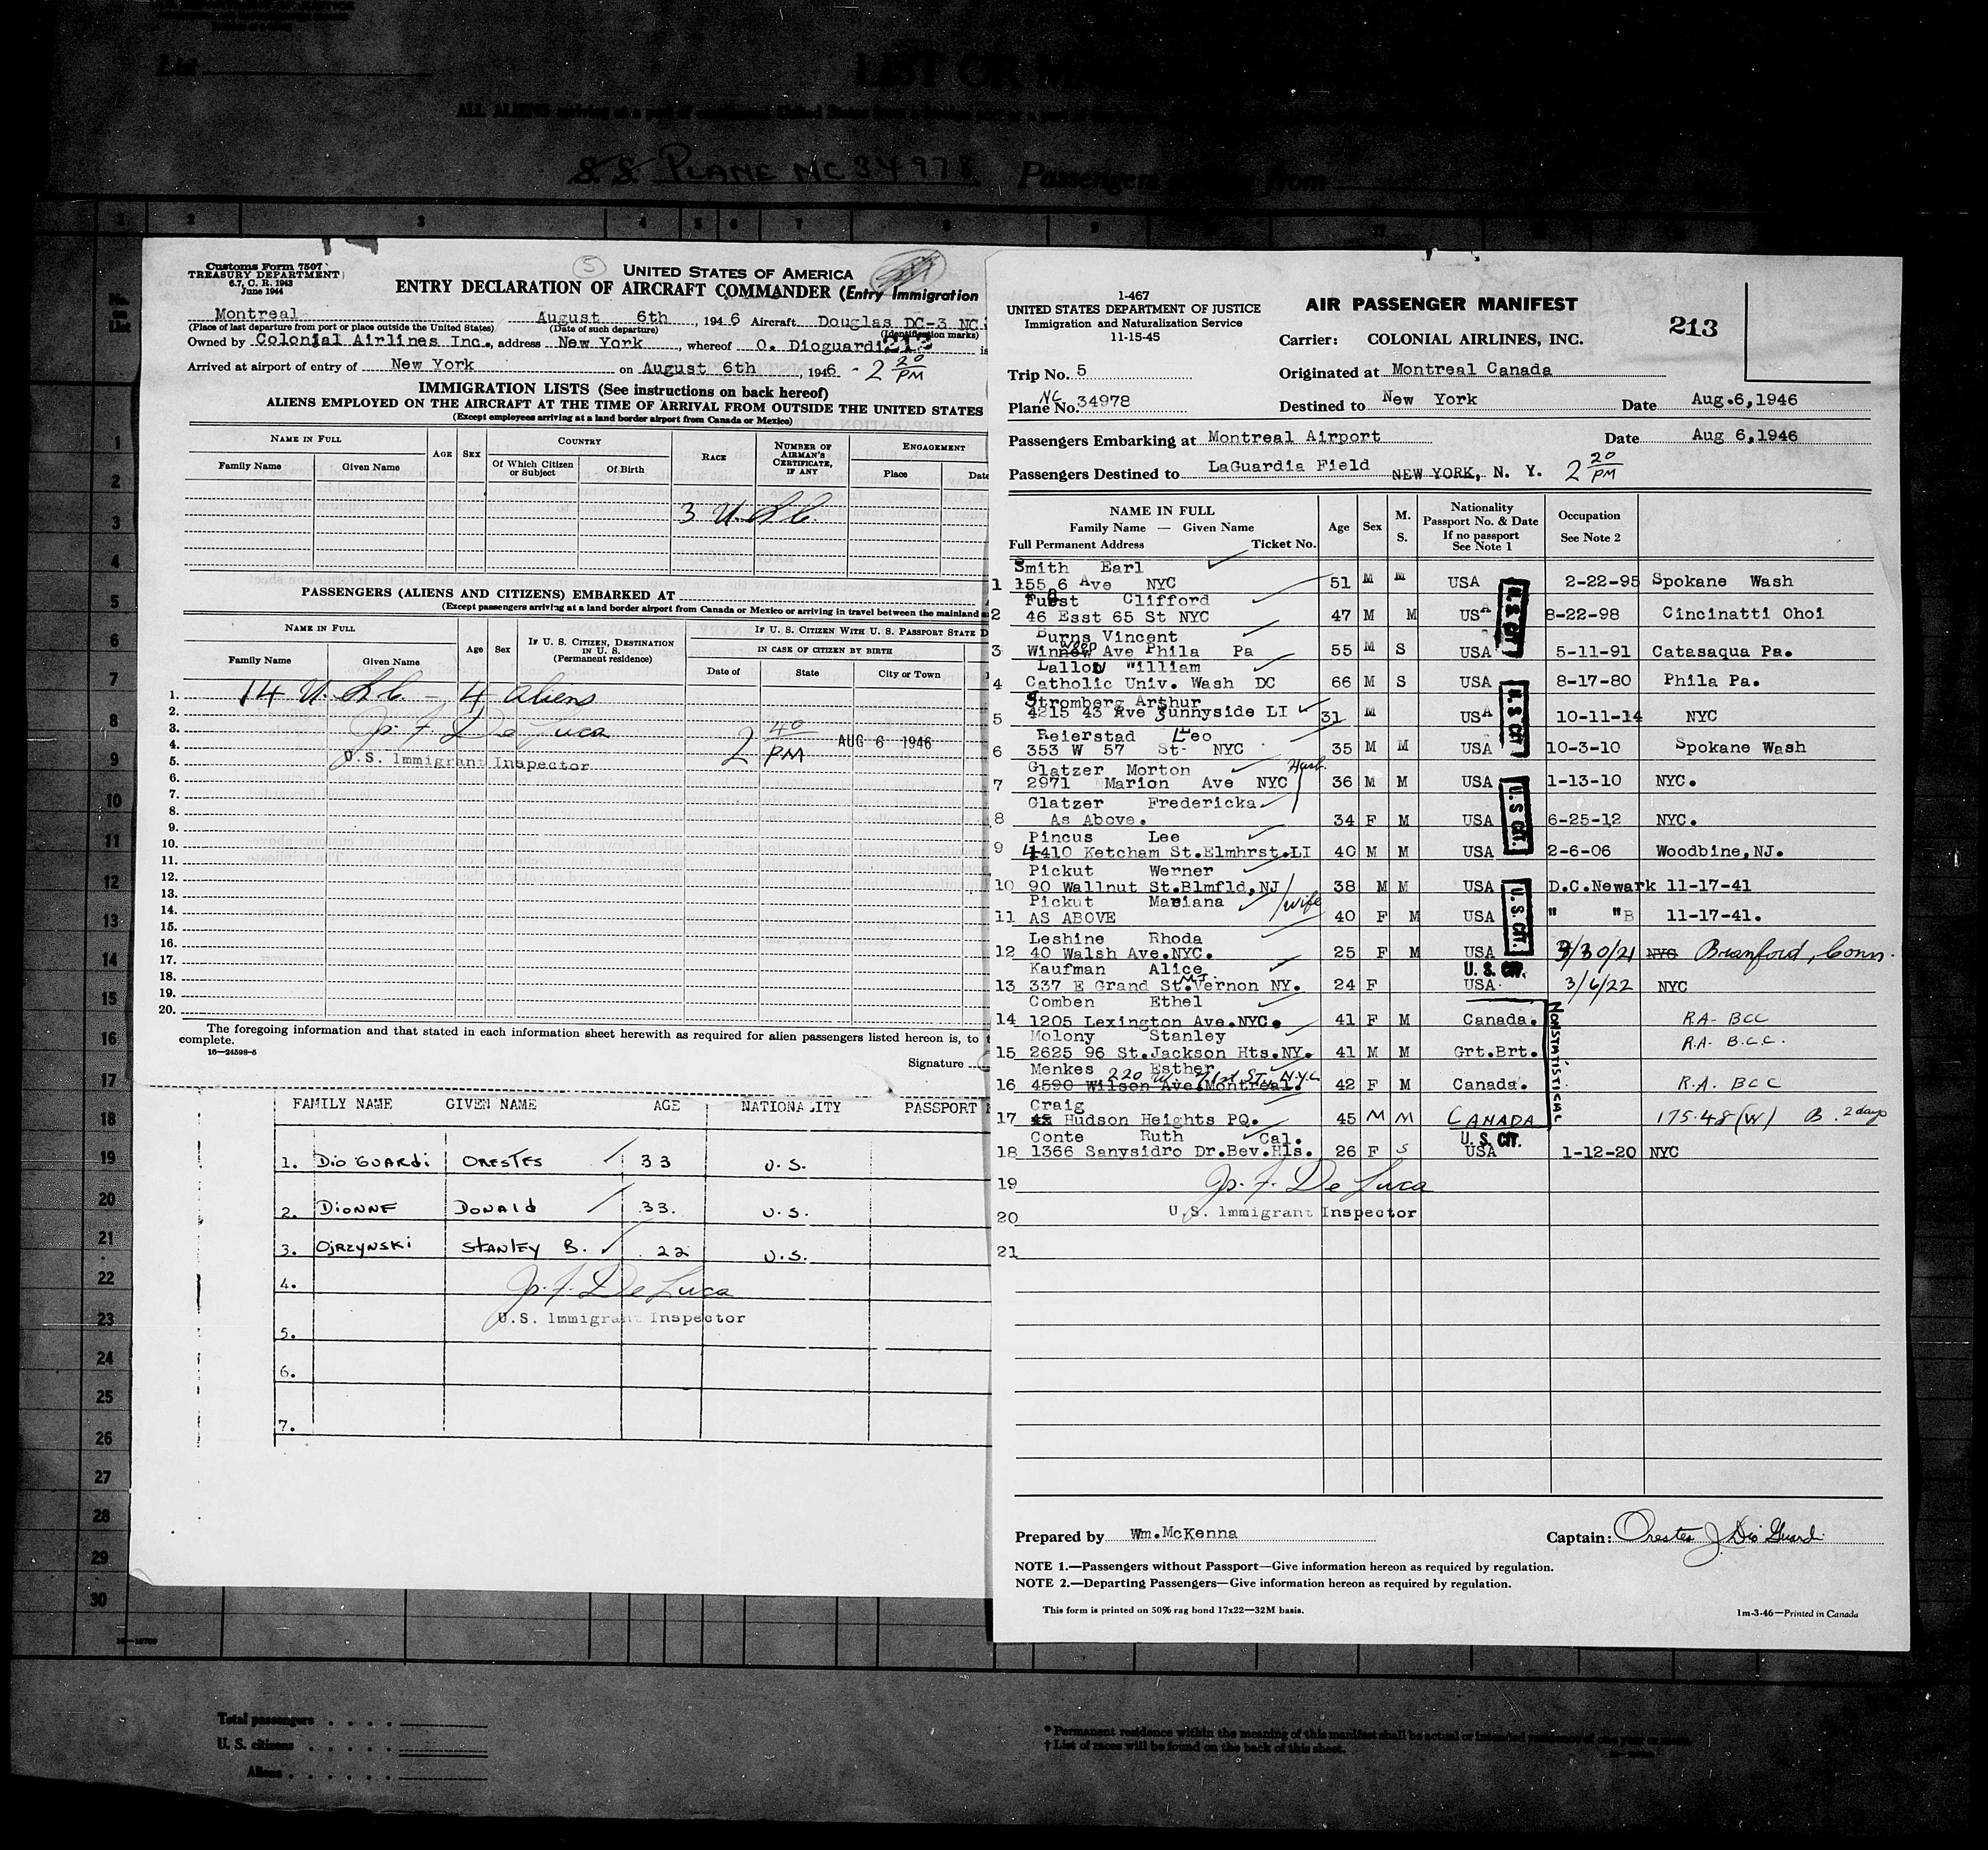 List
LIST OR
ALL ALIENS arriving at a port of continental United States from a foreign port or a port of
S. S. PLANE NC 34978 Passengers from
1 2 3 4 5 6 7 8 9
No. on List
1
2
3
4
5
6
7
8
9
10
11
12
13
14
15
16
17
18
19
20
21
22
23
24
25
26
27
28
29
30
Customs Form 7507
TREASURY DEPARTMENT
6.7, C. R. 1943
June 1944
5
UNITED STATES OF AMERICA
ENTRY DECLARATION OF AIRCRAFT COMMANDER (Entry Immigration
Montreal August 6th, 1946 Aircraft Douglas DC-3 NC
(Place of last departure from port or place outside the United States) (Date of such departure) (Identification marks)
Owned by Colonial Airlines Inc., address New York, whereof O. Dioguardi is
213
Arrived at airport of entry of New York on August 6th, 1946 - 2 20 PM
IMMIGRATION LISTS (See instructions on back hereof)
ALIENS EMPLOYED ON THE AIRCRAFT AT THE TIME OF ARRIVAL FROM OUTSIDE THE UNITED STATES
(Except employees arriving at a land border airport from Canada or Mexico)
NAME IN FULL AGE SEX COUNTRY RACE NUMBER OF AIRMAN'S CERTIFICATE, IF ANY ENGAGEMENT
Family Name Given Name Of Which Citizen or Subject Of Birth Place Date
3 U.S.C.
PASSENGERS (ALIENS AND CITIZENS) EMBARKED AT
(Except passengers arriving at a land border airport from Canada or Mexico or arriving in travel between the mainland
NAME IN FULL Age Sex IF U. S. CITIZEN, DESTINATION IN U. S. (Permanent residence) IF U. S. CITIZEN WITH U. S. PASSPORT STATE D
IN CASE OF CITIZEN BY BIRTH
Family Name Given Name Date of State City or Town
1. 14 U.S.C - 4 aliens
2.
3. Jos. F. De Luca 2 40 PM AUG 6 1946
4.
5. U.S. Immigrant Inspector
6.
7.
8.
9.
10.
11.
12.
13.
14.
15.
16.
17.
18.
19.
20.
The foregoing information and that stated in each information sheet herewith as required for alien passengers listed hereon is, to
complete.
16—24598-5
Signature
FAMILY NAME GIVEN NAME AGE NATIONALITY PASSPORT
1. DioGUARDi ORESTES 33 U.S.
2. DIONNE DONALD 33. U.S.
3. OJRZYNSKI STANLEY B. 22 U.S.
4. Jos. F. De Luca
U.S. Immigrant Inspector
5.
6.
7.
1-467
UNITED STATES DEPARTMENT OF JUSTICE
Immigration and Naturalization Service
11-15-45
AIR PASSENGER MANIFEST
213
Carrier: COLONIAL AIRLINES, INC.
Trip No. 5 Originated at Montreal Canada
Plane No. NC 34978 Destined to New York Date Aug.6,1946
Passengers Embarking at Montreal Airport Date Aug 6,1946
Passengers Destined to LaGuardia Field NEW YORK, N. Y. 2 20 PM
NAME IN FULL Age Sex M. S. Nationality Occupation
Family Name — Given Name Passport No. & Date See Note 2
Full Permanent Address Ticket No. If no passport See Note 1
Smith Earl
1 155 6 Ave NYC 51 M M USA 2-22-95 Spokane Wash
Clifford
2 46 Esst 65 St NYC 47 M M USA 8-22-98 Cincinatti Ohoi
Burns Vincent
3 Ave Phila Pa 55 M S USA 5-11-91 Catasaqua Pa.
Lallou William
4 Catholic Univ. Wash DC 66 M S USA 8-17-80 Phila Pa.
Stromberg Arthur
5 4215 43 Ave Sunnyside LI 31 M USA 10-11-14 NYC
Reierstad Leo
6 353 W 57 St NYC 35 M M USA 10-3-10 Spokane Wash
Glatzer Morton Husb.
7 2971 Marion Ave NYC 36 M M USA 1-13-10 NYC.
Glatzer Fredericka
8 As Above. 34 F M USA 6-25-12 NYC.
Pincus Lee
9 4410 Ketcham St.Elmhrst.LI 40 M M USA 2-6-06 Woodbine,NJ.
Pickut Werner
10 90 Wallnut St.Blmfld,NJ 38 M M USA D.C.Newark 11-17-41
Pickut Mariana wife
11 AS ABOVE 40 F M USA " "B 11-17-41.
Leshine Rhoda
12 40 Walsh Ave.NYC. 25 F M USA 3/30/21 NYC Branford, Conn.
Kaufman Alice U. S. CIT.
13 337 E Grand St.MT.Vernon NY. 24 F USA. 3/6/22 NYC
Comben Ethel
14 1205 Lexington Ave.NYC. 41 F M Canada. R.A- BCC
Molony Stanley
15 2625 96 St.Jackson Hts.NY. 41 M M Grt.Brt. R.A- B.C.C.
Menkes Esther
220 W. 71st ST. N.Y.C
16 4590 Wilson Ave.Montreal. 42 F M Canada. R.A. BCC
Craig
17 Hudson Heights PQ. 45 M M CANADA 175.48(W) B. 2 days
Conte Ruth Cal. U. S. CIT.
18 1366 Sanysidro Dr.Bev.Hls. 26 F S USA 1-12-20 NYC
19 Jos. F. De Luca
20 U.S. Immigrant Inspector
21
U.S CIT
U.S CIT
U.S CIT.
U.S. CIT.
NONSTATISTICAL
Prepared by Wm.McKenna Captain: Orestes J. Dio Guardi
NOTE 1.—Passengers without Passport—Give information hereon as required by regulation.
NOTE 2.—Departing Passengers—Give information hereon as required by regulation.
This form is printed on 50% rag bond 17x22—32M basis. 1m-3-46—Printed in Canada
Total passengers
U. S. citizens
Aliens
* Permanent residence within the meaning of this manifest shall be actual or intended residence of one year or more.
† List of races will be found on the back of this sheet.